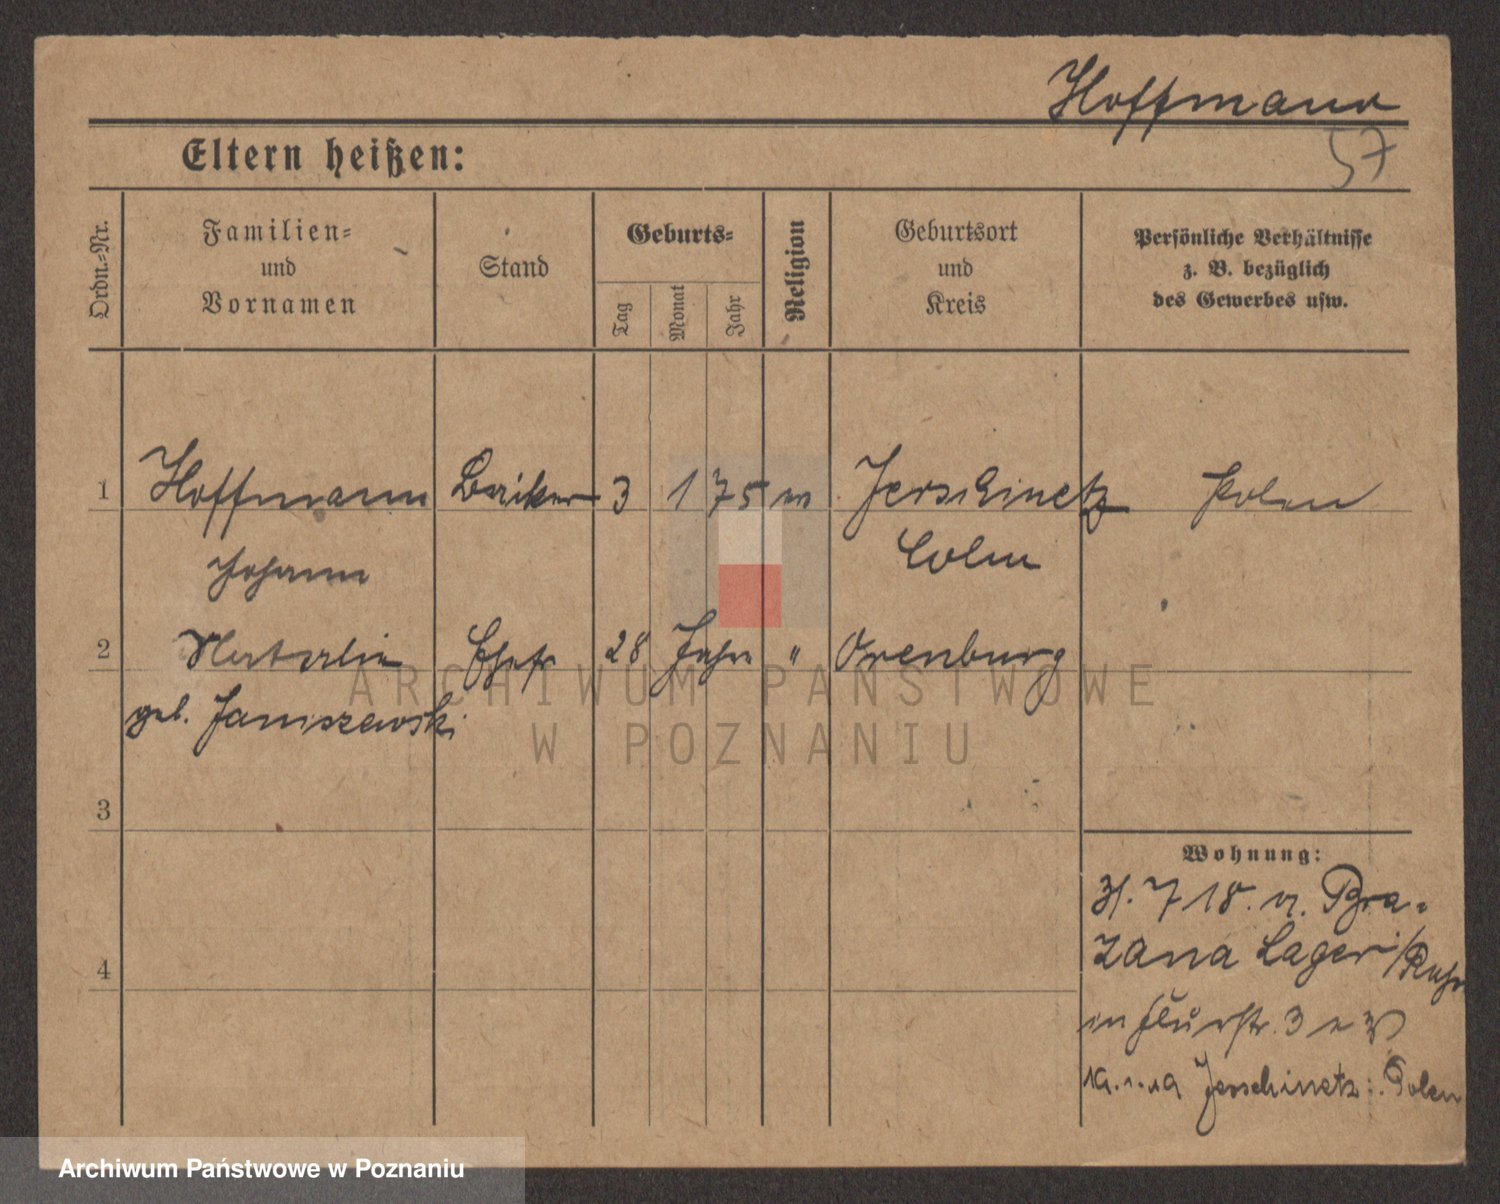 Hoffmann
57
Eltern heißen:
Ordn.-Nr.
Familien-
und
Vornamen
Stand
Geburts-
Tag
Monat
Jahr
Religion
Geburtsort
und
Kreis
Persönliche Verhältnisse
z. B. bezüglich
des Gewerbes usw.
1 Hoffmann 3 1 75 Polen
Johann
2 Natalie Ehefr 28 Jahre " Orenburg
geb. Janiszewski
3
4
Wohnung:
7 18. Bra-
zana Lager
Jerschinetz Polen
ARCHIWUM PAŃSTWOWE
W POZNANIU
Archiwum Państwowe w Poznaniu